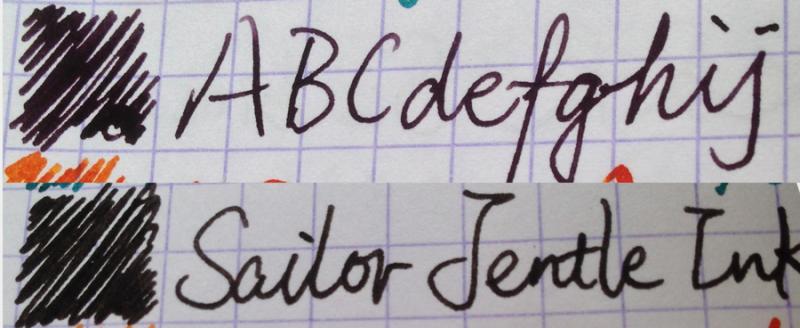 ABCdefghij
Sailor Jentle Ink